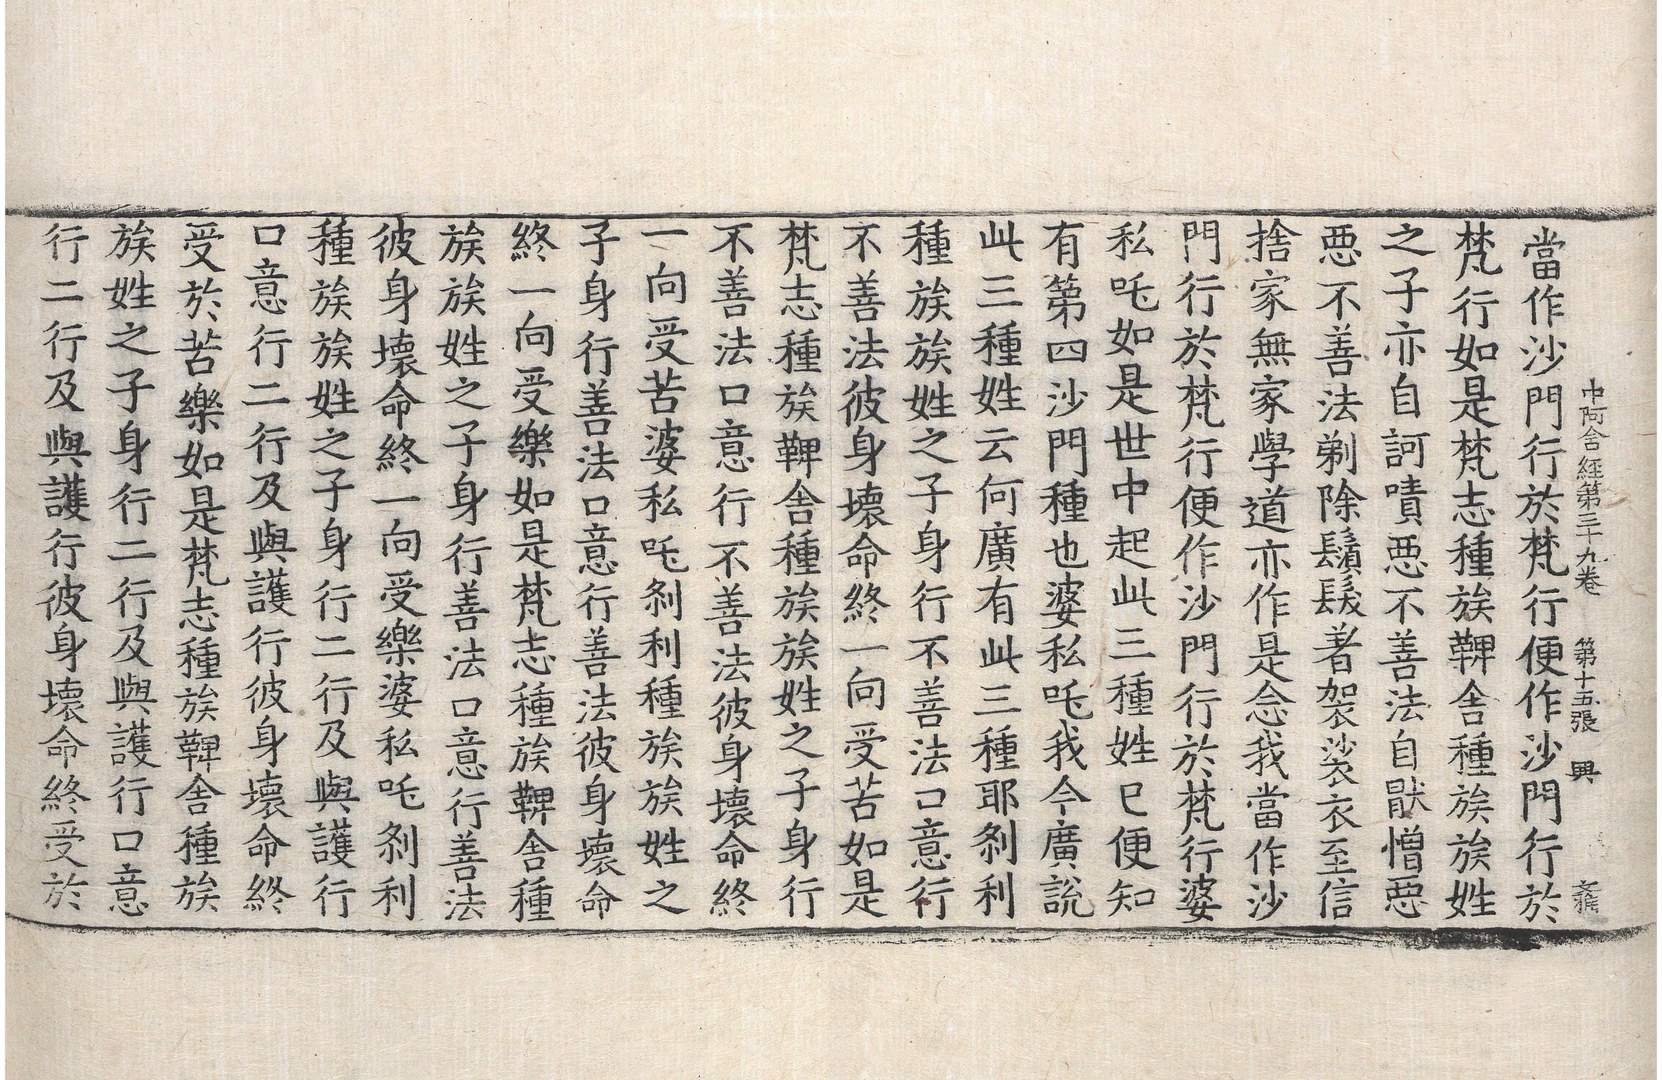 中阿含經第三十九卷　第十五張　興
當作沙門行於梵行便作沙門行於
梵行如是梵志種族鞞舍種族族姓
之子亦自訶嘖惡不善法自猒憎惡
惡不善法剃除鬚髮著袈裟衣至信
捨家無家學道亦作是念我當作沙
門行於梵行便作沙門行於梵行婆
私吒如是世中起此三種姓已便知
有第四沙門種也婆私吒我今廣說
此三種姓云何廣有此三種耶剎利
種族族姓之子身行不善法口意行
不善法彼身壞命終一向受苦如是
梵志種族鞞舍種族族姓之子身行
不善法口意行不善法彼身壞命終
一向受苦婆私吒剎利種族族姓之
子身行善法口意行善法彼身壞命
終一向受樂如是梵志種族鞞舍種
族族姓之子身行善法口意行善法
彼身壞命終一向受樂婆私吒剎利
種族族姓之子身行二行及與護行
口意行二行及與護行彼身壞命終
受於苦樂如是梵志種族鞞舍種族
族姓之子身行二行及與護行口意
行二行及與護行彼身壞命終受於